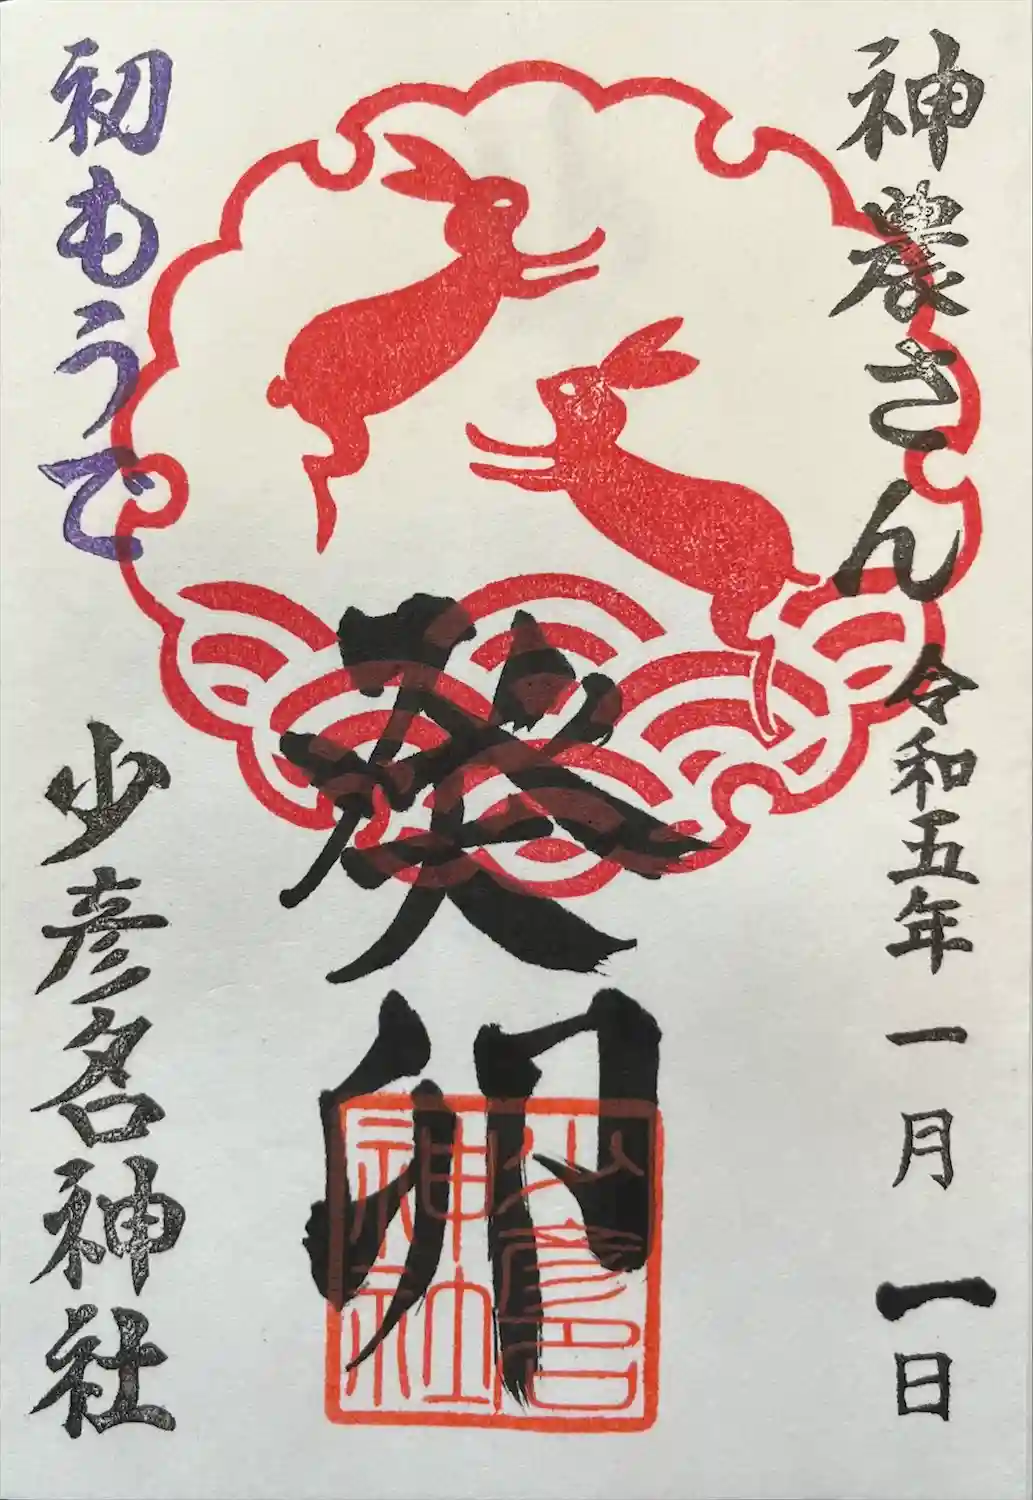 神農さん 令和五年 一月 一日
癸卯
少彦名神社
初もうで
少彦名神社